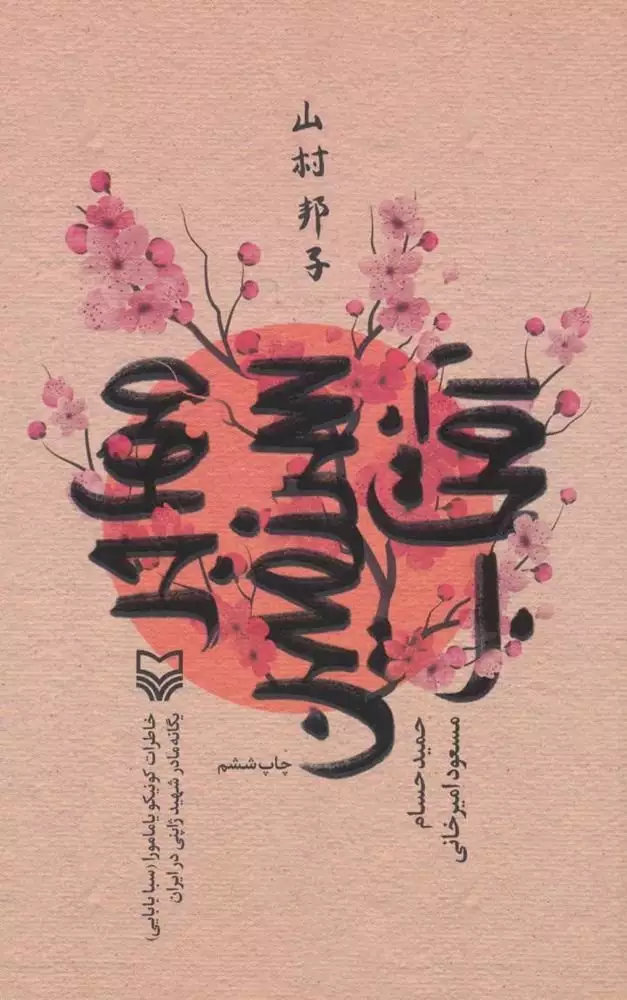 山村邦子
مهاجر
سرزمین
آفتاب
خاطرات کونیکو یامامورا (سبا بابایی)
یگانه مادر شهید ژاپنی در ایران
چاپ ششم
حمید حسام
مسعود امیرخانی